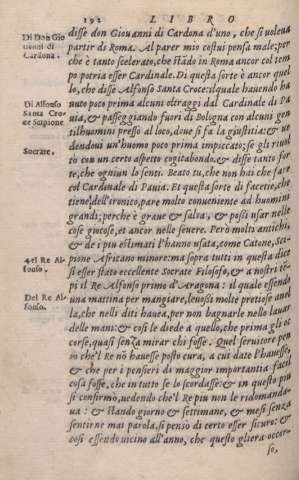 192 LIBRO
Di Don Gio
uanni di
Cardona.
Di Alfonso
Santa Cro-
ce e Scipione.
Socrate.
Del Re Al
fonso.
disse don Giouanni di Cardona d'uno, che si voleua
partir di Roma. Al parer mio costui pensa male; per
che è tanto scelerato, che stādo in Roma ancor col tem
po potria esser Cardinale. Di questa sorte è ancor quel
lo, che disse Alfonso Santa Croce: ilquale hauendo ha
uuto poco prima alcuni oltraggi dal Cardinale di Pa
uia, & passeggiando fuori di Bologna con alcuni gen
tilhuomini presso al loco, doue si fa la giustitia: & ue
dendoui un'huomo poco prima impiccato; se gli riuol
tò con un certo aspetto cogitabondo, & disse tanto for
te, che ogniun lo sentì. Beato tu, che non hai che fare
col Cardinale di Pauia. Et questa sorte di facetie, che
tiene dell'ironico, pare molto conueniente ad huomini
grandi; perche è graue & salsa, & possi usar nelle
cose giocose, et ancor nelle seuere. Però molti antichi,
& de i piu estimati l'hanno usata, come Catone, Sci-
pione Africano minore: ma sopra tutti in questa dice
si esser stato eccellente Socrate Filosofo, & a nostri tē
pi il Re Alfonso primo d'Aragona: il quale essendo
una mattina per mangiare, leuossi molte pretiose anel
la, che nelli diti hauea, per non bagnarle nello lauar
delle mani: & così le diede a quello, che prima gli oc
corse, quasi senza mirar chi fosse. Quel seruitore pen
sò che'l Re nō hauesse posto cura, a cui date l'hauesse,
& che per i pensieri di maggior importantia facil
cosa fosse, che in tutto se lo scordasse: & in questo piu
si confirmò, uedendo che'l Re piu non le ridomanda-
ua: & stando giorno & settimane, & mesi senza
sentirne mai parola, si pensò di certo esser sicuro: &
così essendo uicino all'anno, che questo gli era occor-
so,